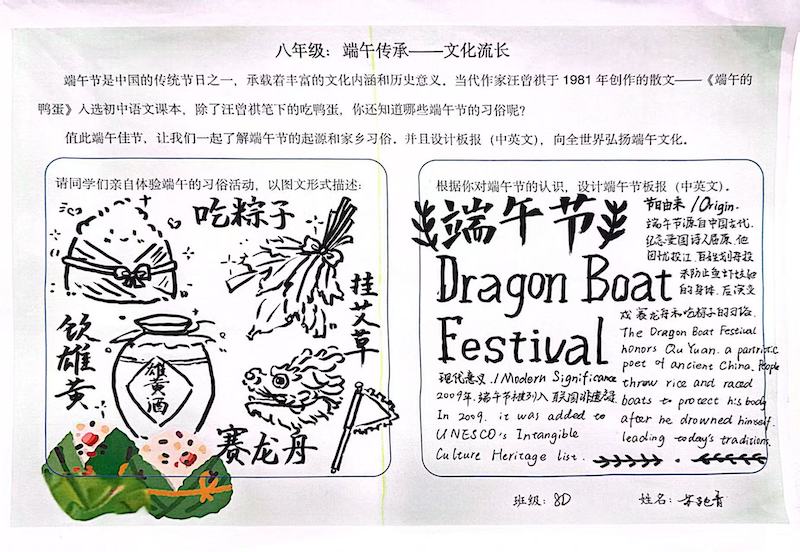 八年级：端午传承——文化流长
端午节是中国的传统节日之一，承载着丰富的文化内涵和历史意义。当代作家汪曾祺于 1981 年创作的散文——《端午的
鸭蛋》入选初中语文课本，除了汪曾祺笔下的吃鸭蛋，你还知道哪些端午节的习俗呢？
值此端午佳节，让我们一起了解端午节的起源和家乡习俗。并且设计板报（中英文），向全世界弘扬端午文化。
请同学们亲自体验端午的习俗活动，以图文形式描述：
吃粽子
挂艾草
饮雄黄
雄黄酒
赛龙舟
根据你对端午节的认识，设计端午节板报（中英文）。
端午节
Dragon Boat
Festival
节日由来 / Origin.
端午节源自中国古代.
纪念爱国诗人屈原. 他
因忧投江. 百姓划舟投
米防止鱼虾
的身体. 后演变
成 赛龙舟和吃粽子的习俗.
The Dragon Boat Festival
honors Qu Yuan. a patriotic
poet of ancient China. People
threw rice and raced
boats to protect his body
after he drowned himself.
leading today's traditions.
现代意义 / Modern Significance
2009年. 端午节被列入 联国非遗
In 2009. it was added to
UNESCO's Intangible
Culture Heritage list.
班级：8D
姓名：